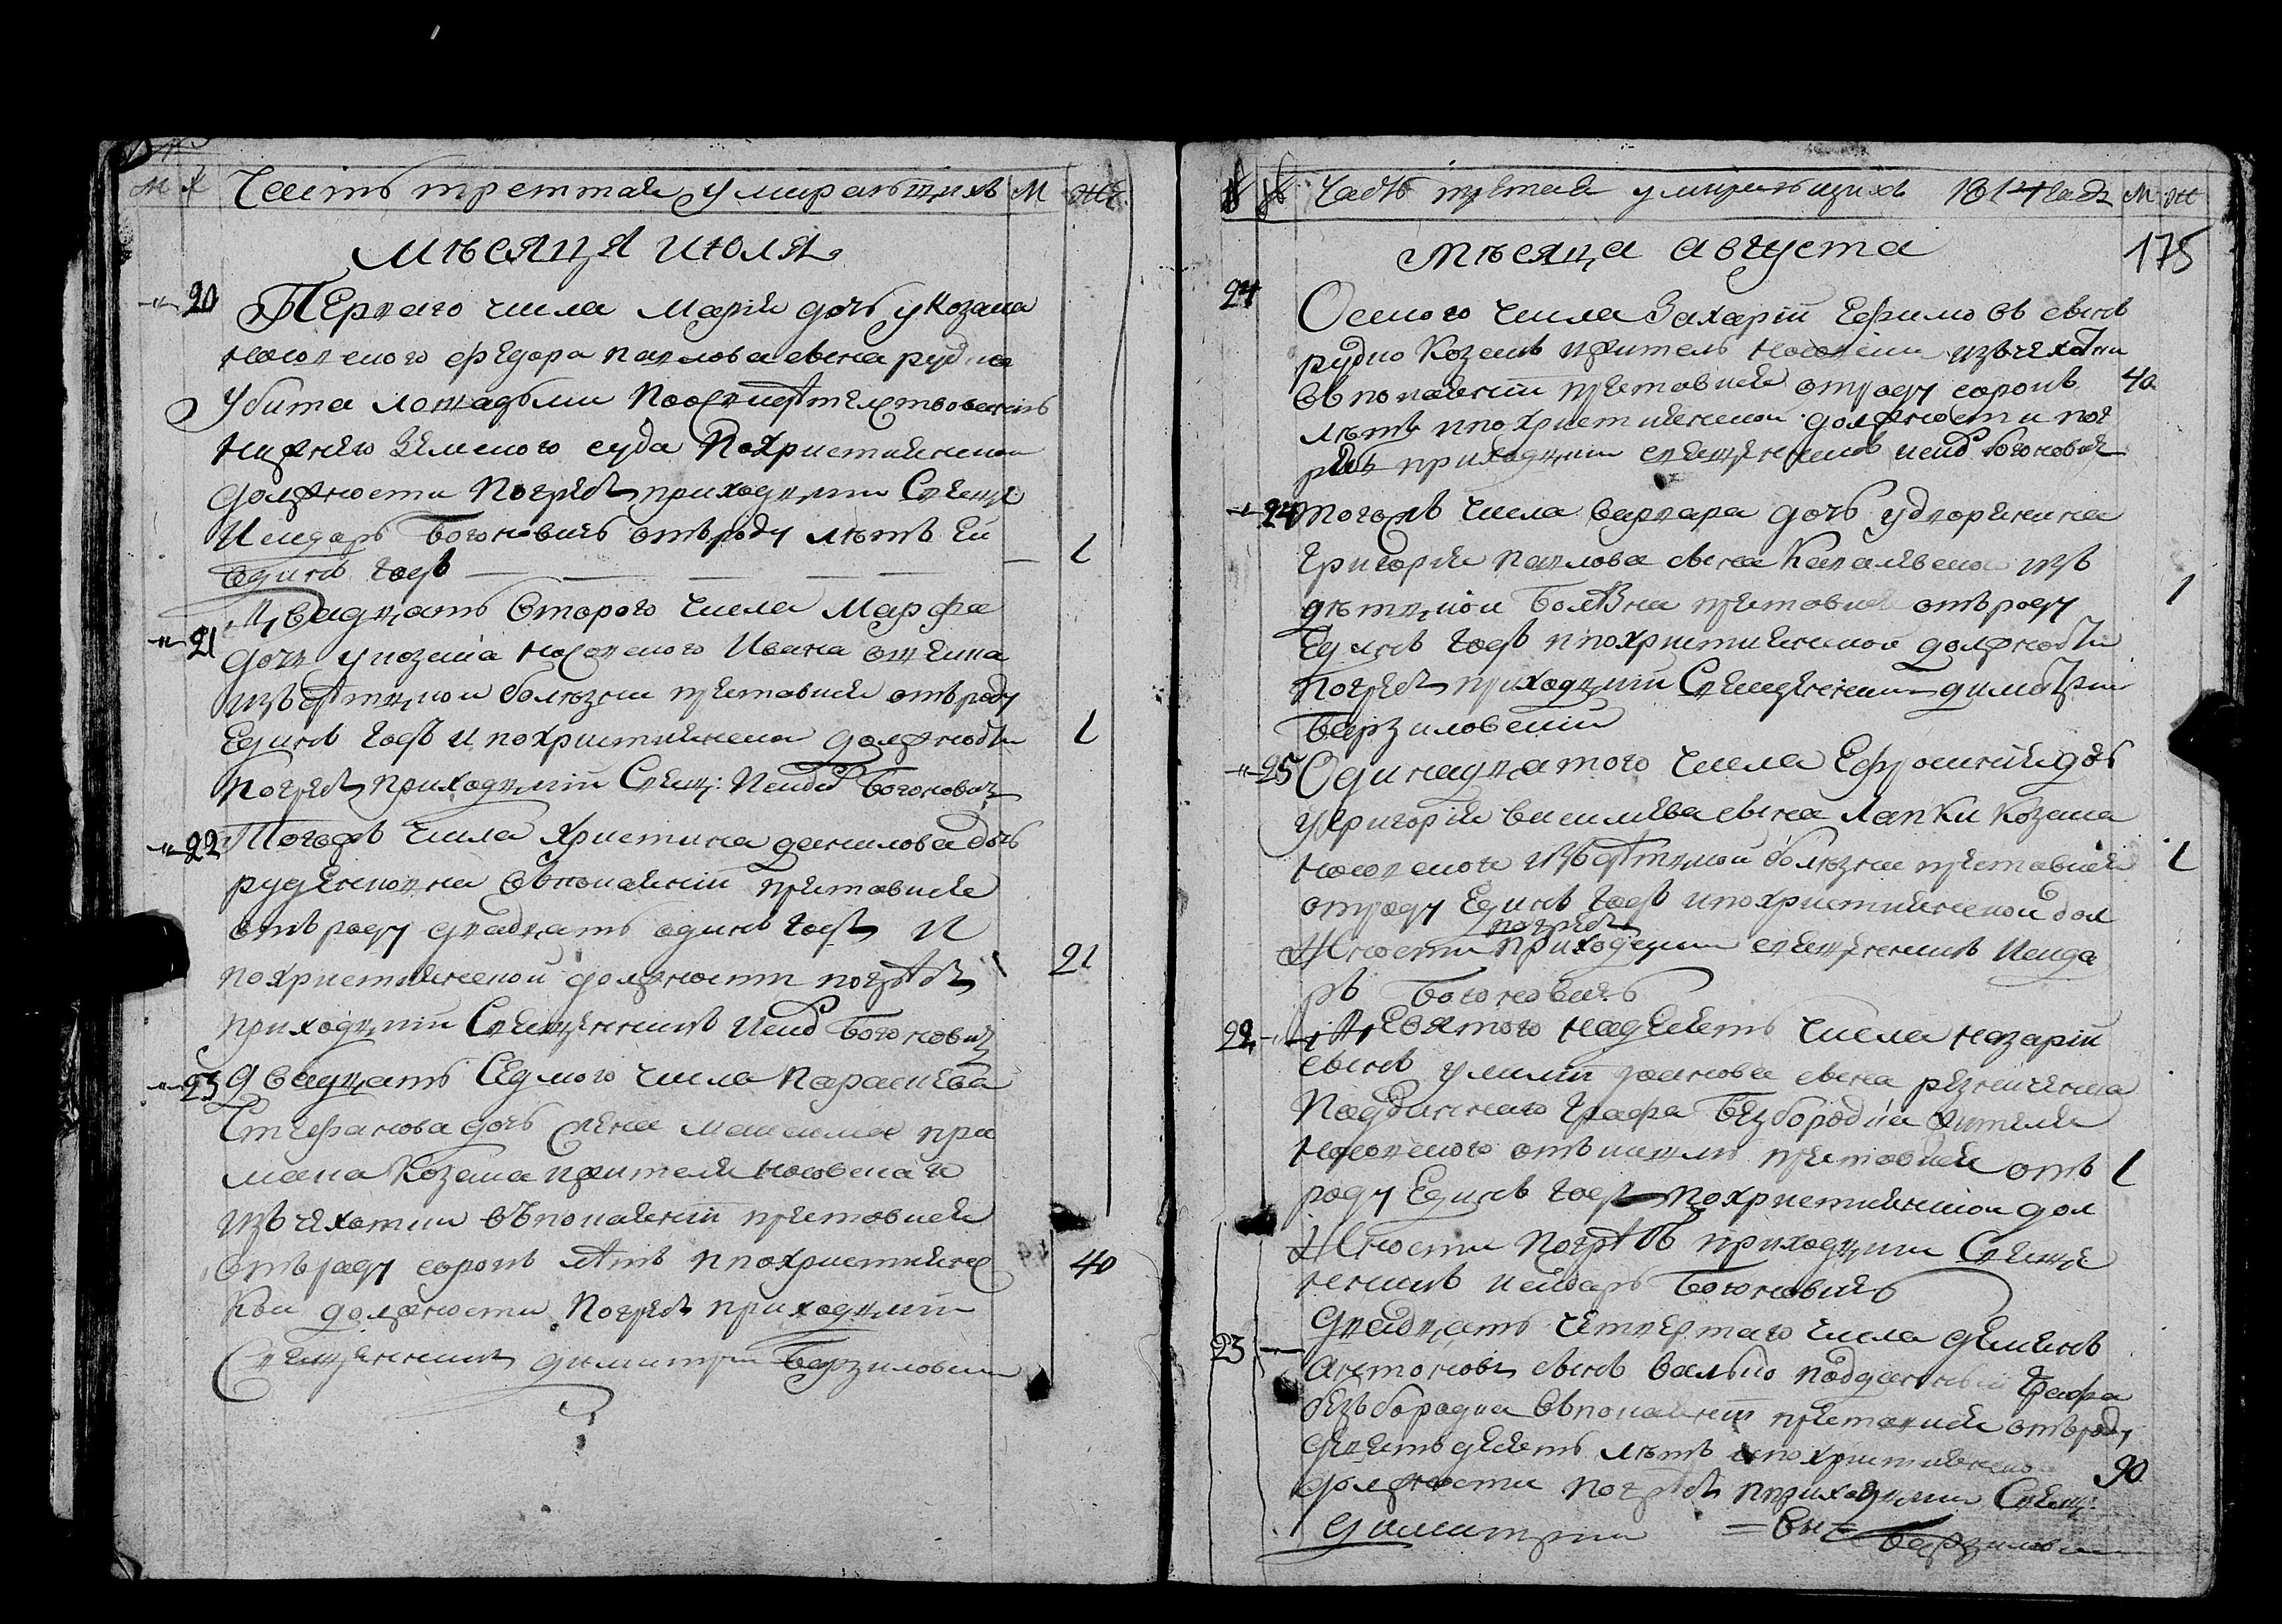 М Ж Часть треттая умиральщихъ М Же
мѣсяца июля
20 Перваго числа Мария дочь у козака
носовского Федора Павлова сына Рудка
убита лошадьми по свидѣтелствованию
нижнего земского суда по християнской
должности погребъ приходский Свяще
Исидоръ Богоновичъ отъ роду лѣтъ ей
единъ годъ 1
21 Двадцать второго числа Марфа
дочь у козака носовского Ивана
изъ дѣтинной болѣзни преставися отъ роду
единъ годъ и по християнской должности 1
погребъ приходский Свящ: Исидо Богонович
22 Тогожъ числа Христина Данилова дочь
в покаянии преставися
отъ роду двадцать одинъ годъ И
по християнской должности погрѣбъ 21
приходский Священникъ Исид Богонович
23 Двадцать Седмого числа Параскева
Стефанова дочь Максима При
мака козака жителя носовского
изъ чахотки въ покаянии преставися
отъ роду сорокъ лѣтъ и по християнс 40
кой должности погребъ приходский
Священникъ Димитрий Барзиловский
Часть третая умиральщихъ 1814 года М Ж
мѣсяца августа 175
21 Осмого числа Захарий Ефимовъ сынъ
Рудко козакъ житель носовский изъ чахотки
въ покаянии преставися отроду сорокъ 40
лѣтъ и по християнской должности пог
ребъ приходский священникъ Исид Богонович
24 тогожъ числа Варвара дочь у дворянина
Григория Павлова сына изъ
дѣтинной болѣзни преставися отъ роду 1
единъ годъ и по християнской должности
погребъ приходский Священникъ Димитрий
Барзиловский
25 Одинадцатого числа Ефросиния дочь
у Григория Василиева сына Лапки козака
носовского изъ дѣтинной болѣзни преставися 1
отроду единъ годъ и по християнской дол
погребъ
жности приходский священникъ Исида
ръ Богоновичъ
22 Девятого надцять числа Назарий
сынъ у сына
подданного графа Безбородка жителя
носовского отъ преставися отъ 1
роду единъ годъ по християнской дол
жности погрѣбъ приходский Свяще
нникъ Исидоръ Богоновичъ
23 Двадцать четвертаго числа Демянъ
Антоновъ сынъ подданный Графа
безъбородка въ покаянии преставися отъ роду
девятьдесятъ лѣтъ и по християнско 90
должности погрѣбъ приходский Свящ:
Димитрий Барзиловский